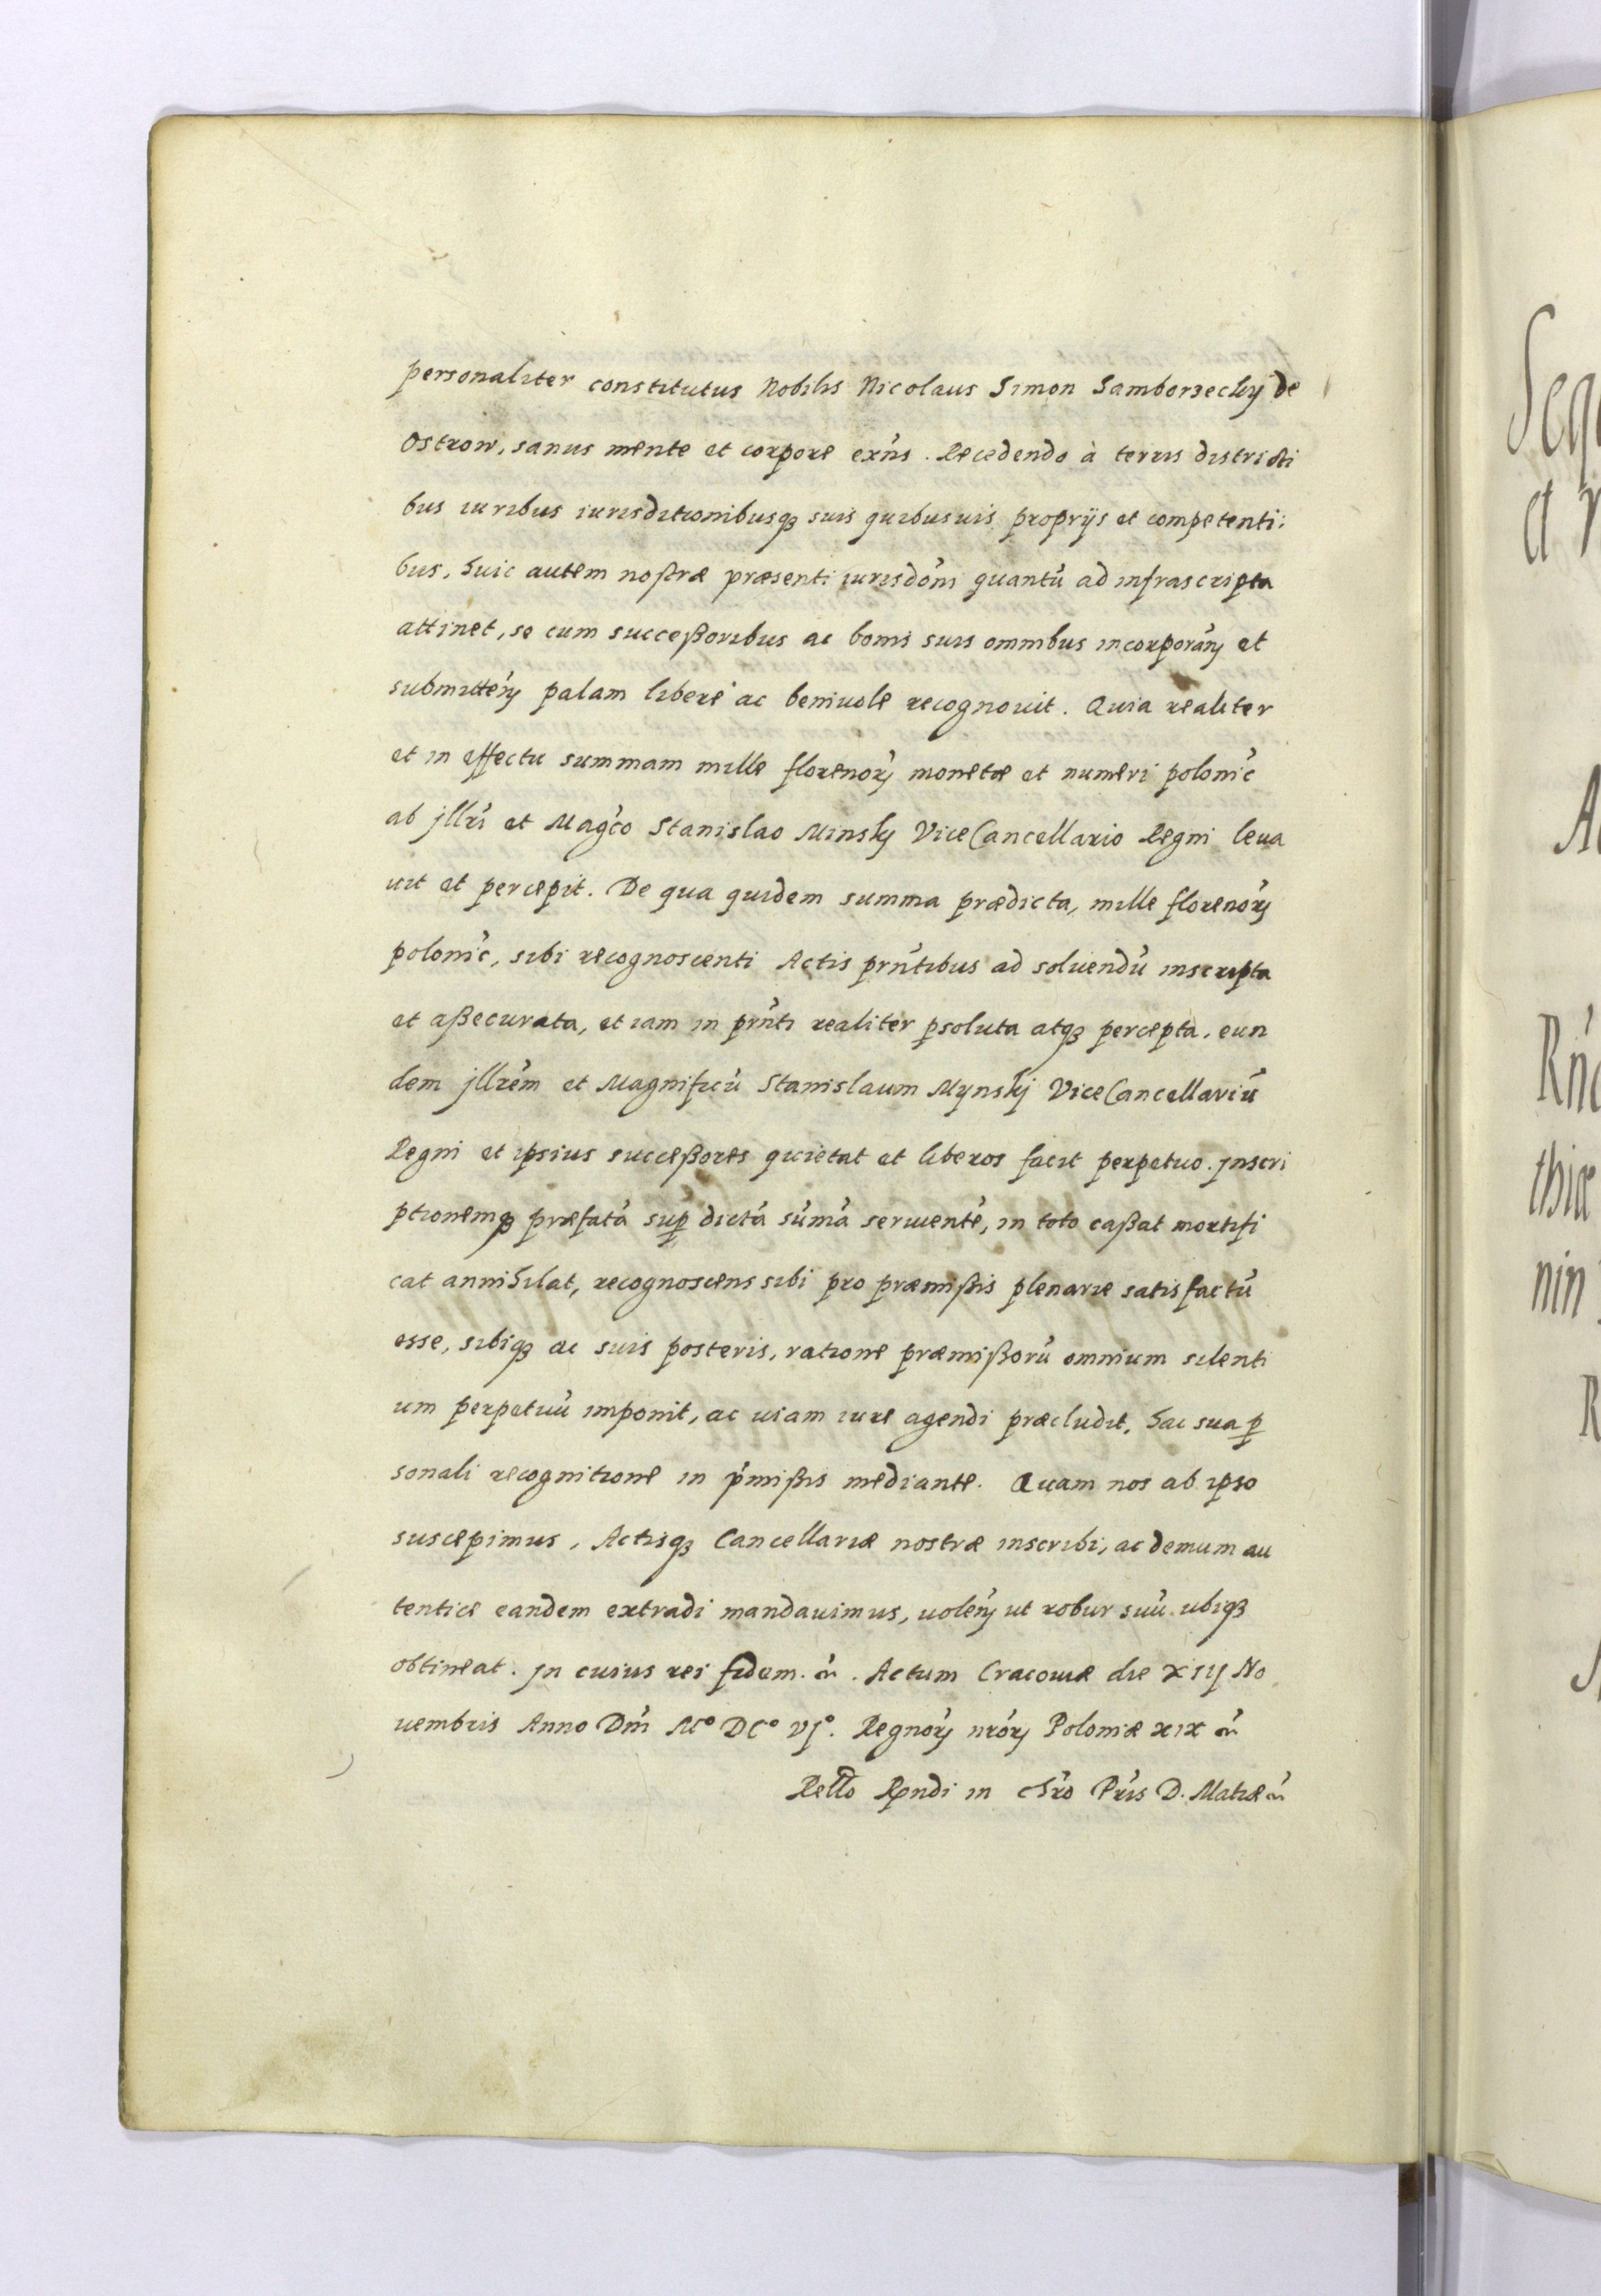 personaliter constitutus Nobilis Nicolaus Simon Samborzecky de
Ostrow, sanus mente et corpore exn̄s. Recedendo à terris districti
bus iuribus iurisditionibusqꝫ suis quibusuis proprijs et competenti:
bus, huic autem nostræ præsenti iurisdōni quantū ad infrascripta
attinet, se cum succeßoribus ac bonis suis omnibus incorporan̄ et
submitten̄ palam liberè ac beniuole recognouit. Quia realiter
et in effectu summam mille florenorꝫ monetæ et numeri polonic̄
ab jllrī et Magc̄o Stanislao Minsky ViceCancellario Regni leua
uit et percepit. De qua quidem summa prædicta, mille florenorꝫ
polonic̄, sibi recognoscenti Actis prn̄tibus ad soluendū inscripta
et aßecurata, et iam in prn̄ti realiter ꝑsoluta atqꝫ percepta, eun
dem jllrēm et Magnificū Stanislaum Mynskj ViceCancellariū
Regni et ipsius succeßores quietat et liberos facit perpetuo. Jnscri
ptionemqꝫ præfatā suꝑ dictā sūmā seruientē, in toto caßat mortifi
cat annihilat, recognoscens sibi pro præmißis plenarie satisfactū
esse, sibiqꝫ ac suis posteris, ratione præmißorū omnium silenti
um perpetuū imponit, ac uiam iure agendi præcludit, hac sua ꝑ
sonali recognitione in p̄mißis mediante. Quam nos ab ipso
suscepimus, Actisqꝫ Cancellariæ nostræ inscribi, ac demum au
tentice eandem extradi mandauimus, uolen̄ ut robur suū ubiqꝫ
obtineat. Jn cuius rei fidem. etc̄. Actum Cracouiæ die XIIJ No
uembris Anno Dn̄i M° DC° VJ°. Regnorꝫ nrōrꝫ Poloniæ XIX etc̄
Rell̄o Rꝑndi in Chrō Prīs D. Matiæ etc̄
Rn̄
thiæ
nin
R